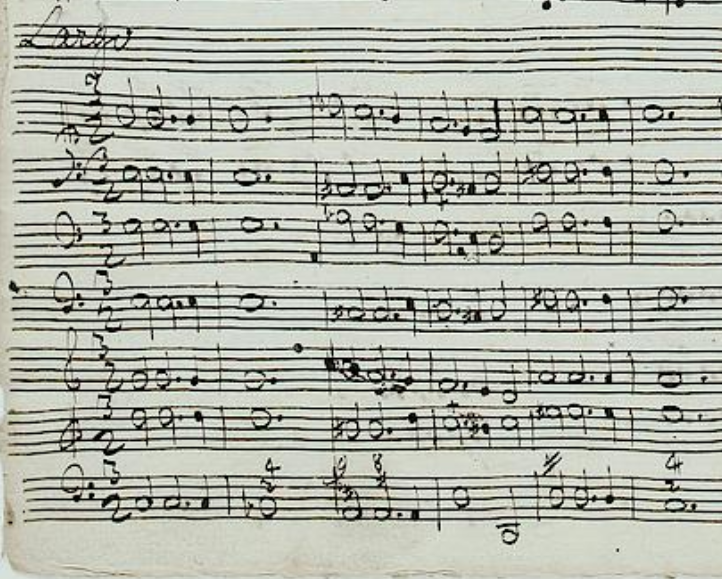 Largo
3
2
3
2
3
2
3
2
3
2
3
2
3 4 6 8 4
2 2 2